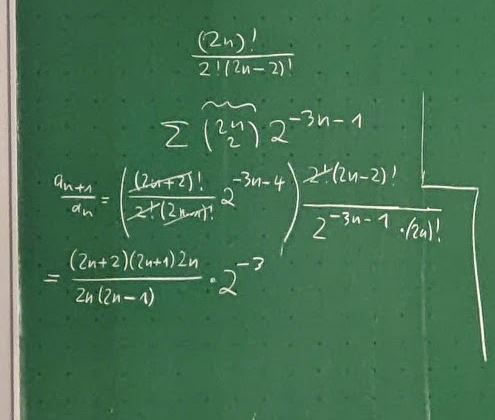 (2n)! / 2!(2n-2)!
Σ (2n 2) 2^{-3n-1}
a_{n+1} / a_n = ( (2n+2)! / 2!(2n)! 2^{-3n-4} ) 2!(2n-2)! / 2^{-3n-1} · (2n)!
= (2n+2)(2n+1)2n / 2n(2n-1) · 2^{-3}